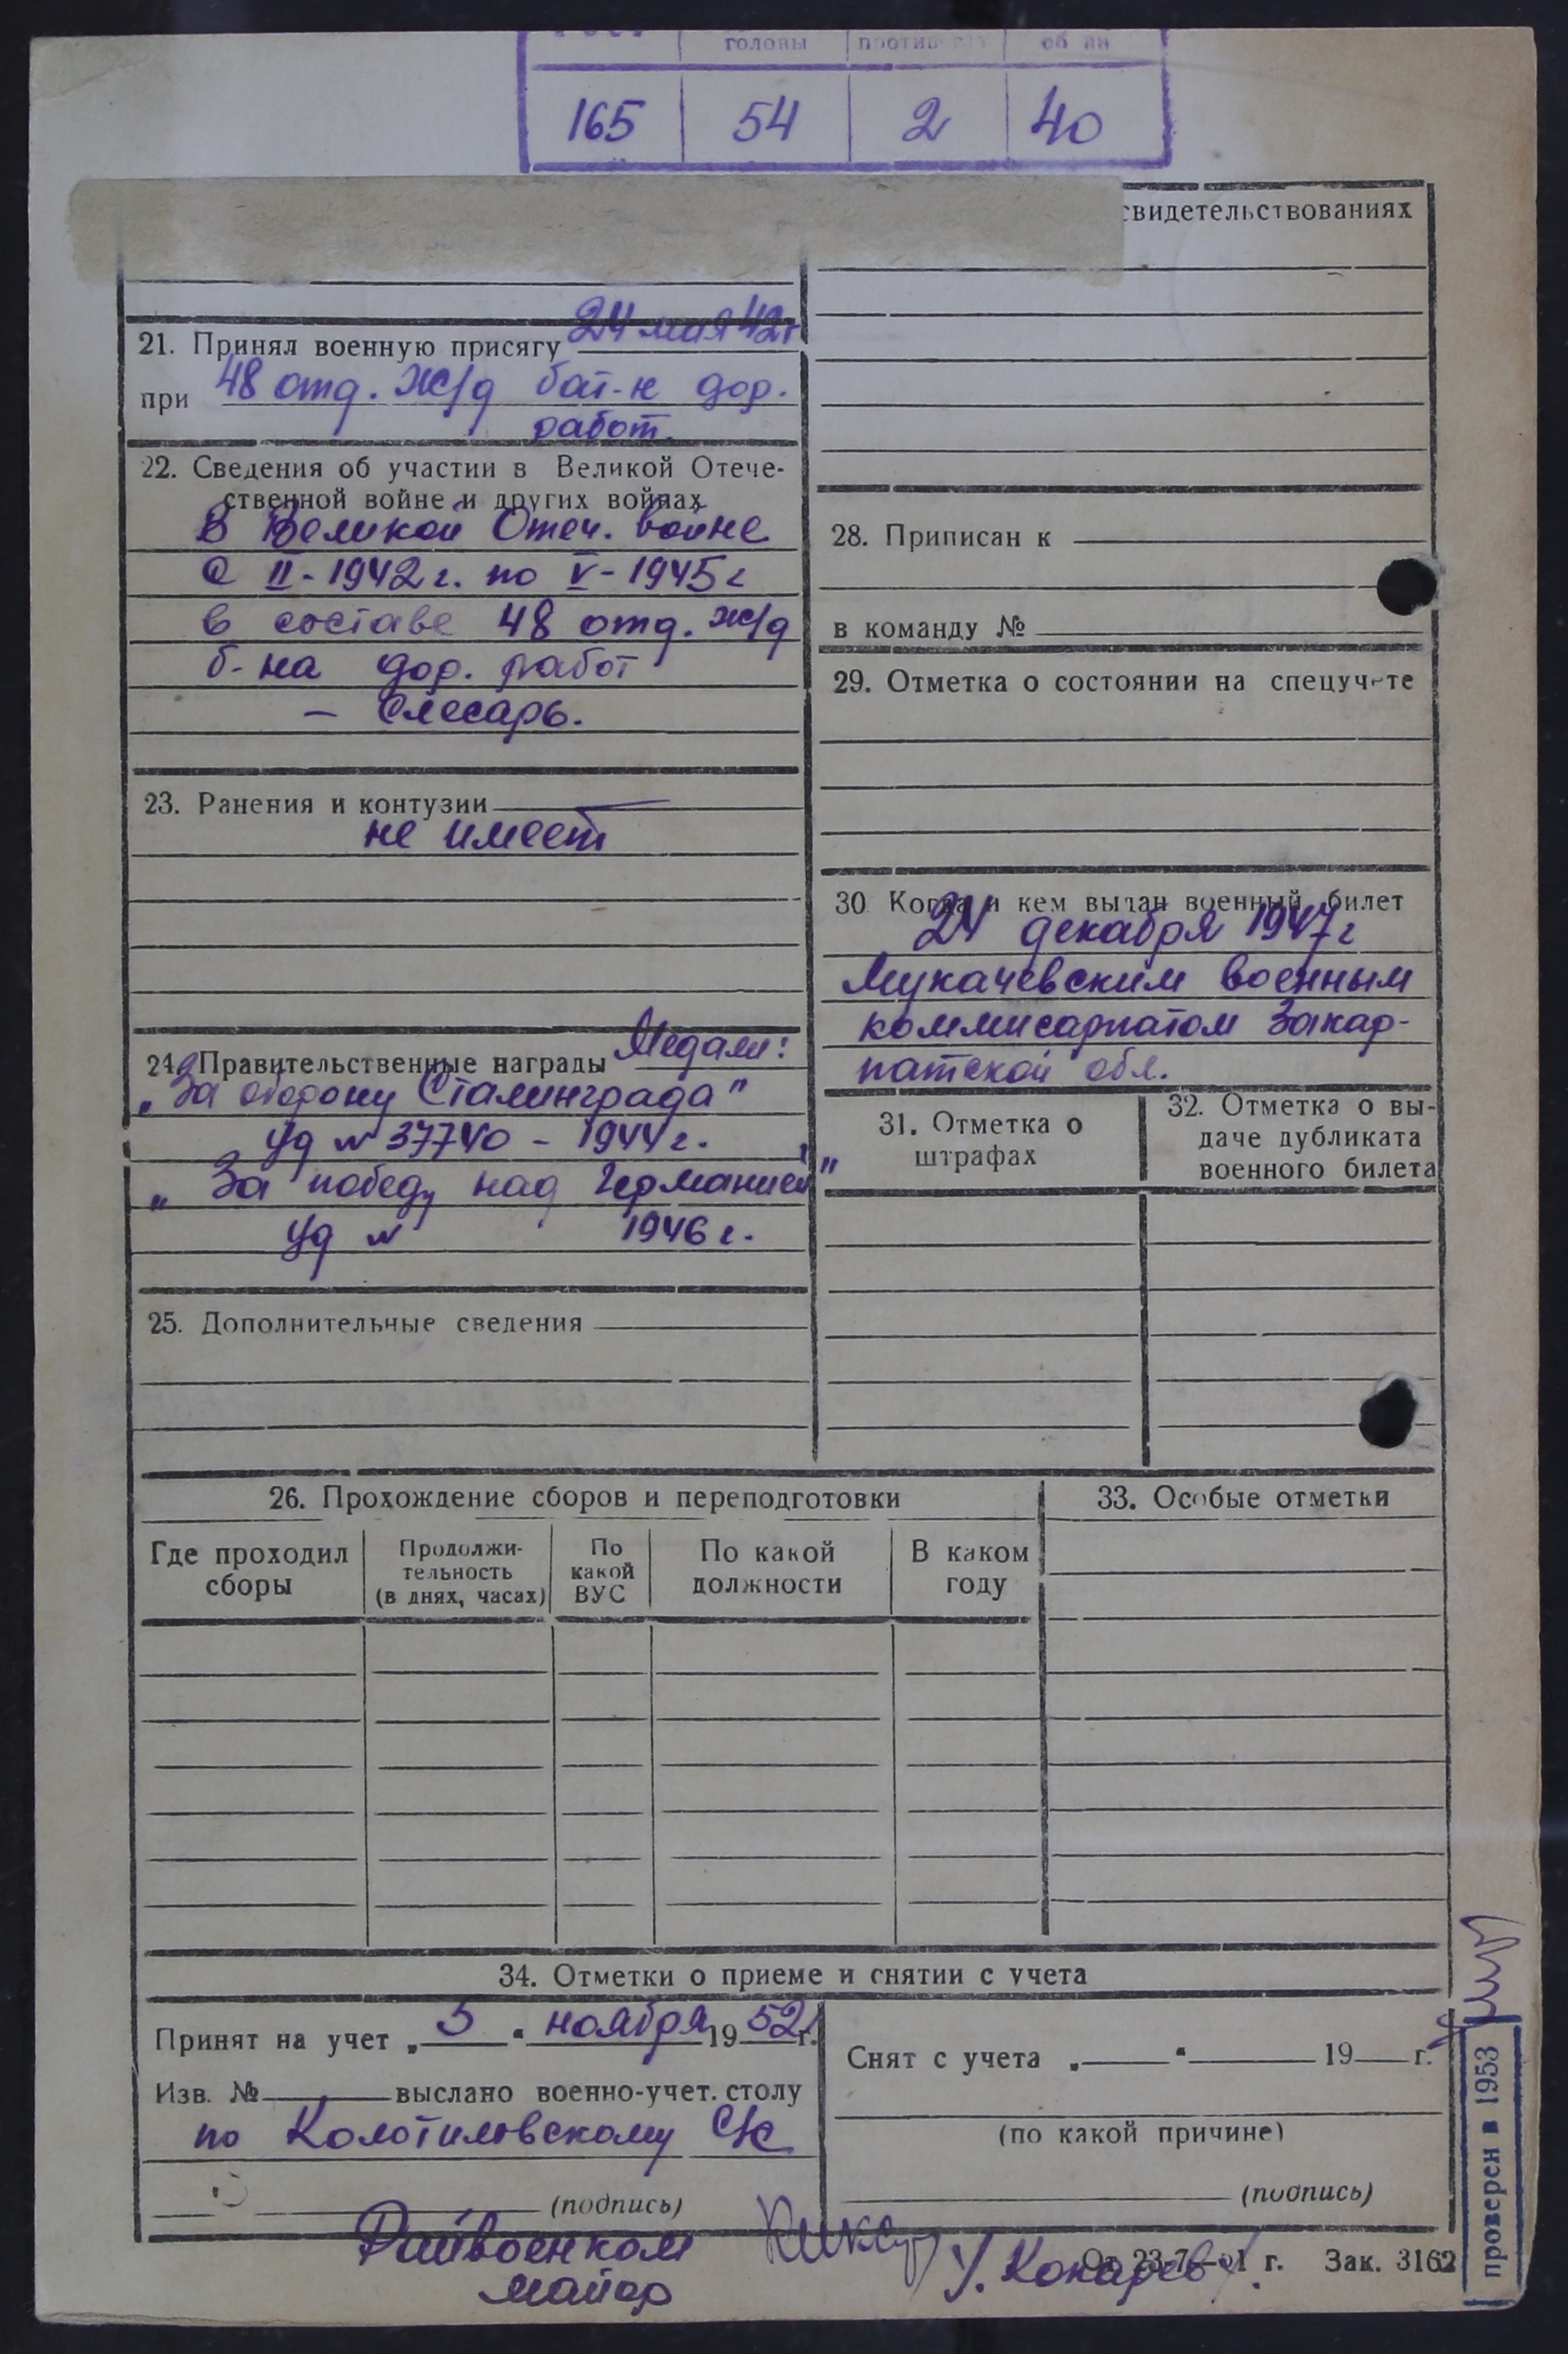 головы
165 54 2 40
свидетельствованиях
21. Принял военную присягу 24 мая 42г
при 48 отд. ж/д бат-н дор.
работ.
22. Сведения об участии в Великой Отече-
ственной войне и других войнах
В Великой Отеч. войне
С II-1942 г. по V-1945 г
в составе 48 отд. ж/д
б-на дор. работ
— Слесарь.
23. Ранения и контузии
не имеет
24. Правительственные награды Медали:
„За оборону Сталинграда"
Уд № 37740 - 1944 г.
„За победу над Германией"
Уд № 1946 г.
25. Дополнительные сведения
28. Приписан к
в команду №
29. Отметка о состоянии на спецучете
30 Когда и кем выдан военный билет
24 декабря 1947 г
Мукачевским военным
коммисариатом Закар-
патской обл.
31. Отметка о
штрафах
32. Отметка о вы-
даче дубликата
военного билета
26. Прохождение сборов и переподготовки
Где проходил
сборы
Продолжи-
тельность
(в днях, часах)
По
какой
ВУС
По какой
должности
В каком
году
33. Особые отметки
34. Отметки о приеме и снятии с учета
Принят на учет „ 5 " ноября 19 52 г.
Изв. № выслано военно-учет. столу
по Колотиловскому С/С
(подпись)
Снят с учета „ " 19 г.
(по какой причине)
(подпись)
Райвоенком
майор
У. Кокарев
Зак. 3162
проверен в 1953